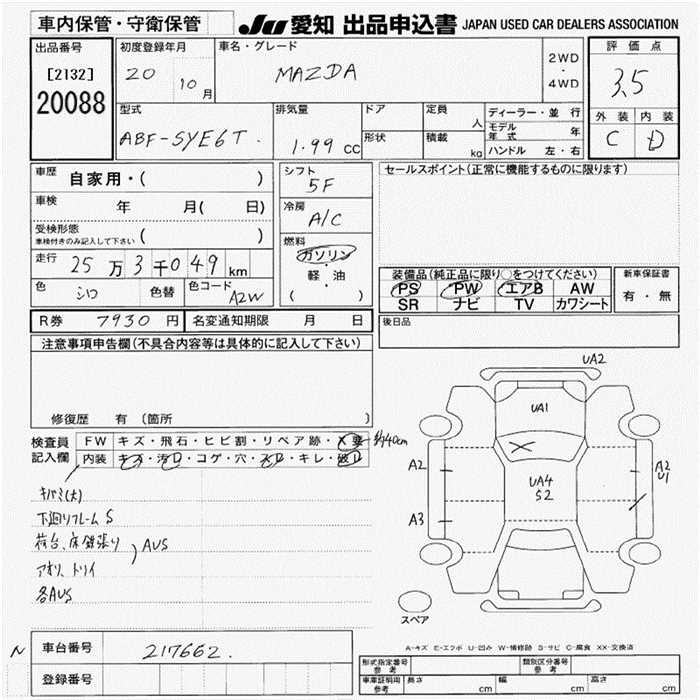 車内保管・守衛保管
JU 愛知 出品申込書 JAPAN USED CAR DEALERS ASSOCIATION
出品番号
[2132]
20088
初度登録年月
20
10月
車名・グレード
MAZDA
2WD
・
4WD
評価点
3.5
外装 内装
C D
型式
ABF-SYE6T.
排気量
1.99 cc
ドア
形状
定員
人
積載
kg
ディーラー・並行
モデル年式 年
ハンドル 左・右
車歴 自家用・( )
車検 年 月( 日)
受検形態
車検付きのみ記入して下さい ( )
走行 25万3千049km
色 シロ 色替 色コード A2W
シフト
5F
冷房
A/C
燃料
ガソリン
・
軽・油
( )
セールスポイント(正常に機能するものに限ります)
装備品(純正品に限り○をつけてください)
PS PW エアB AW
SR ナビ TV カワシート
新車保証書
有・無
R券 7930円 名変通知期限 月 日
後日品
注意事項申告欄(不具合内容等は具体的に記入して下さい)
修復歴 有 (箇所 )
検査員
記入欄
FW キズ・飛石・ヒビ割・リペア跡・X要 約40cm
内装 キズ・汚レ・コゲ・穴・スレ・キレ・破レ
キバミ(大)
下廻りフレームS
荷台、床鉄張り AUS
アオリ、トリイ
各AUS
UA2
UA1
UA4
S2
A2
A3
A2
U1
スペア
A-キズ E-エクボ U-凹み W-補修跡 S-サビ C-腐食 XX-交換済
N 車台番号 217662.
登録番号
形式指定番号
参考
類別区分番号
参考
車庫証明用
参考
長さ cm 幅 cm 高さ cm